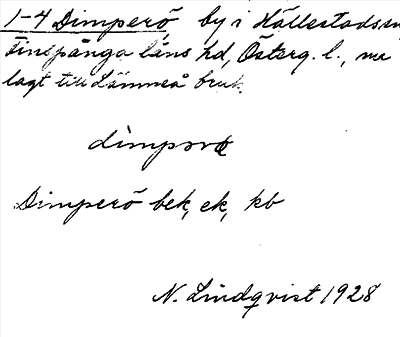 1-4 Dimperö, by i Hällestads sn
Finspånga läns hd, Österg. l.,
lagt till Lämneå bruk.
dimpərö
Dimperö bek, ek, kb
N. Lindqvist 1928